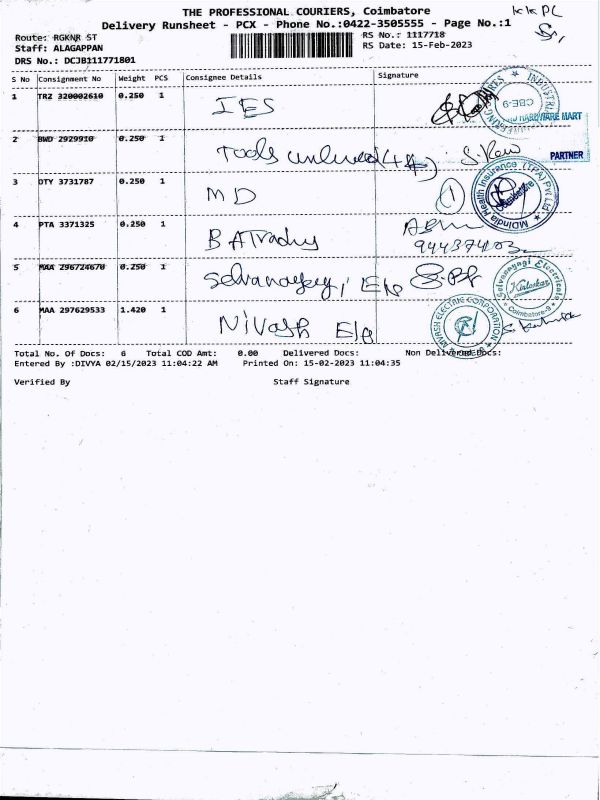 THE PROFESSIONAL COURIERS, Coimbatore
KKPL
Delivery Runsheet - PCX - Phone No.:0422-3505555 - Page No.:1
Route: RGKNR ST
RS No.: 1117718
Staff: ALAGAPPAN
RS Date: 15-Feb-2023
DRS No.: DCJB111771801
S No Consignment No Weight PCS Consignee Details Signature
1 TRZ 320002610 0.250 1 IES
CBE-9
HARDWARE MART
2 BWD 2929910 0.250 1 Tools
PARTNER
3 DTY 3731787 0.250 1 MD 1
MDIndia Health Insurance (TPA) Pvt Ltd
Coimbatore
4 PTA 3371325 0.250 1 B A
5 MAA 296724670 0.250 1
Selvanayagi Electricals
Kirloskar
Coimbatore-9
6 MAA 297629533 1.420 1 Nivash
NIVASH ELECTRIC CORPORATION
Total No. Of Docs: 6 Total COD Amt: 0.00 Delivered Docs: Non Delivered Docs:
Entered By :DIVYA 02/15/2023 11:04:22 AM Printed On: 15-02-2023 11:04:35
Verified By Staff Signature